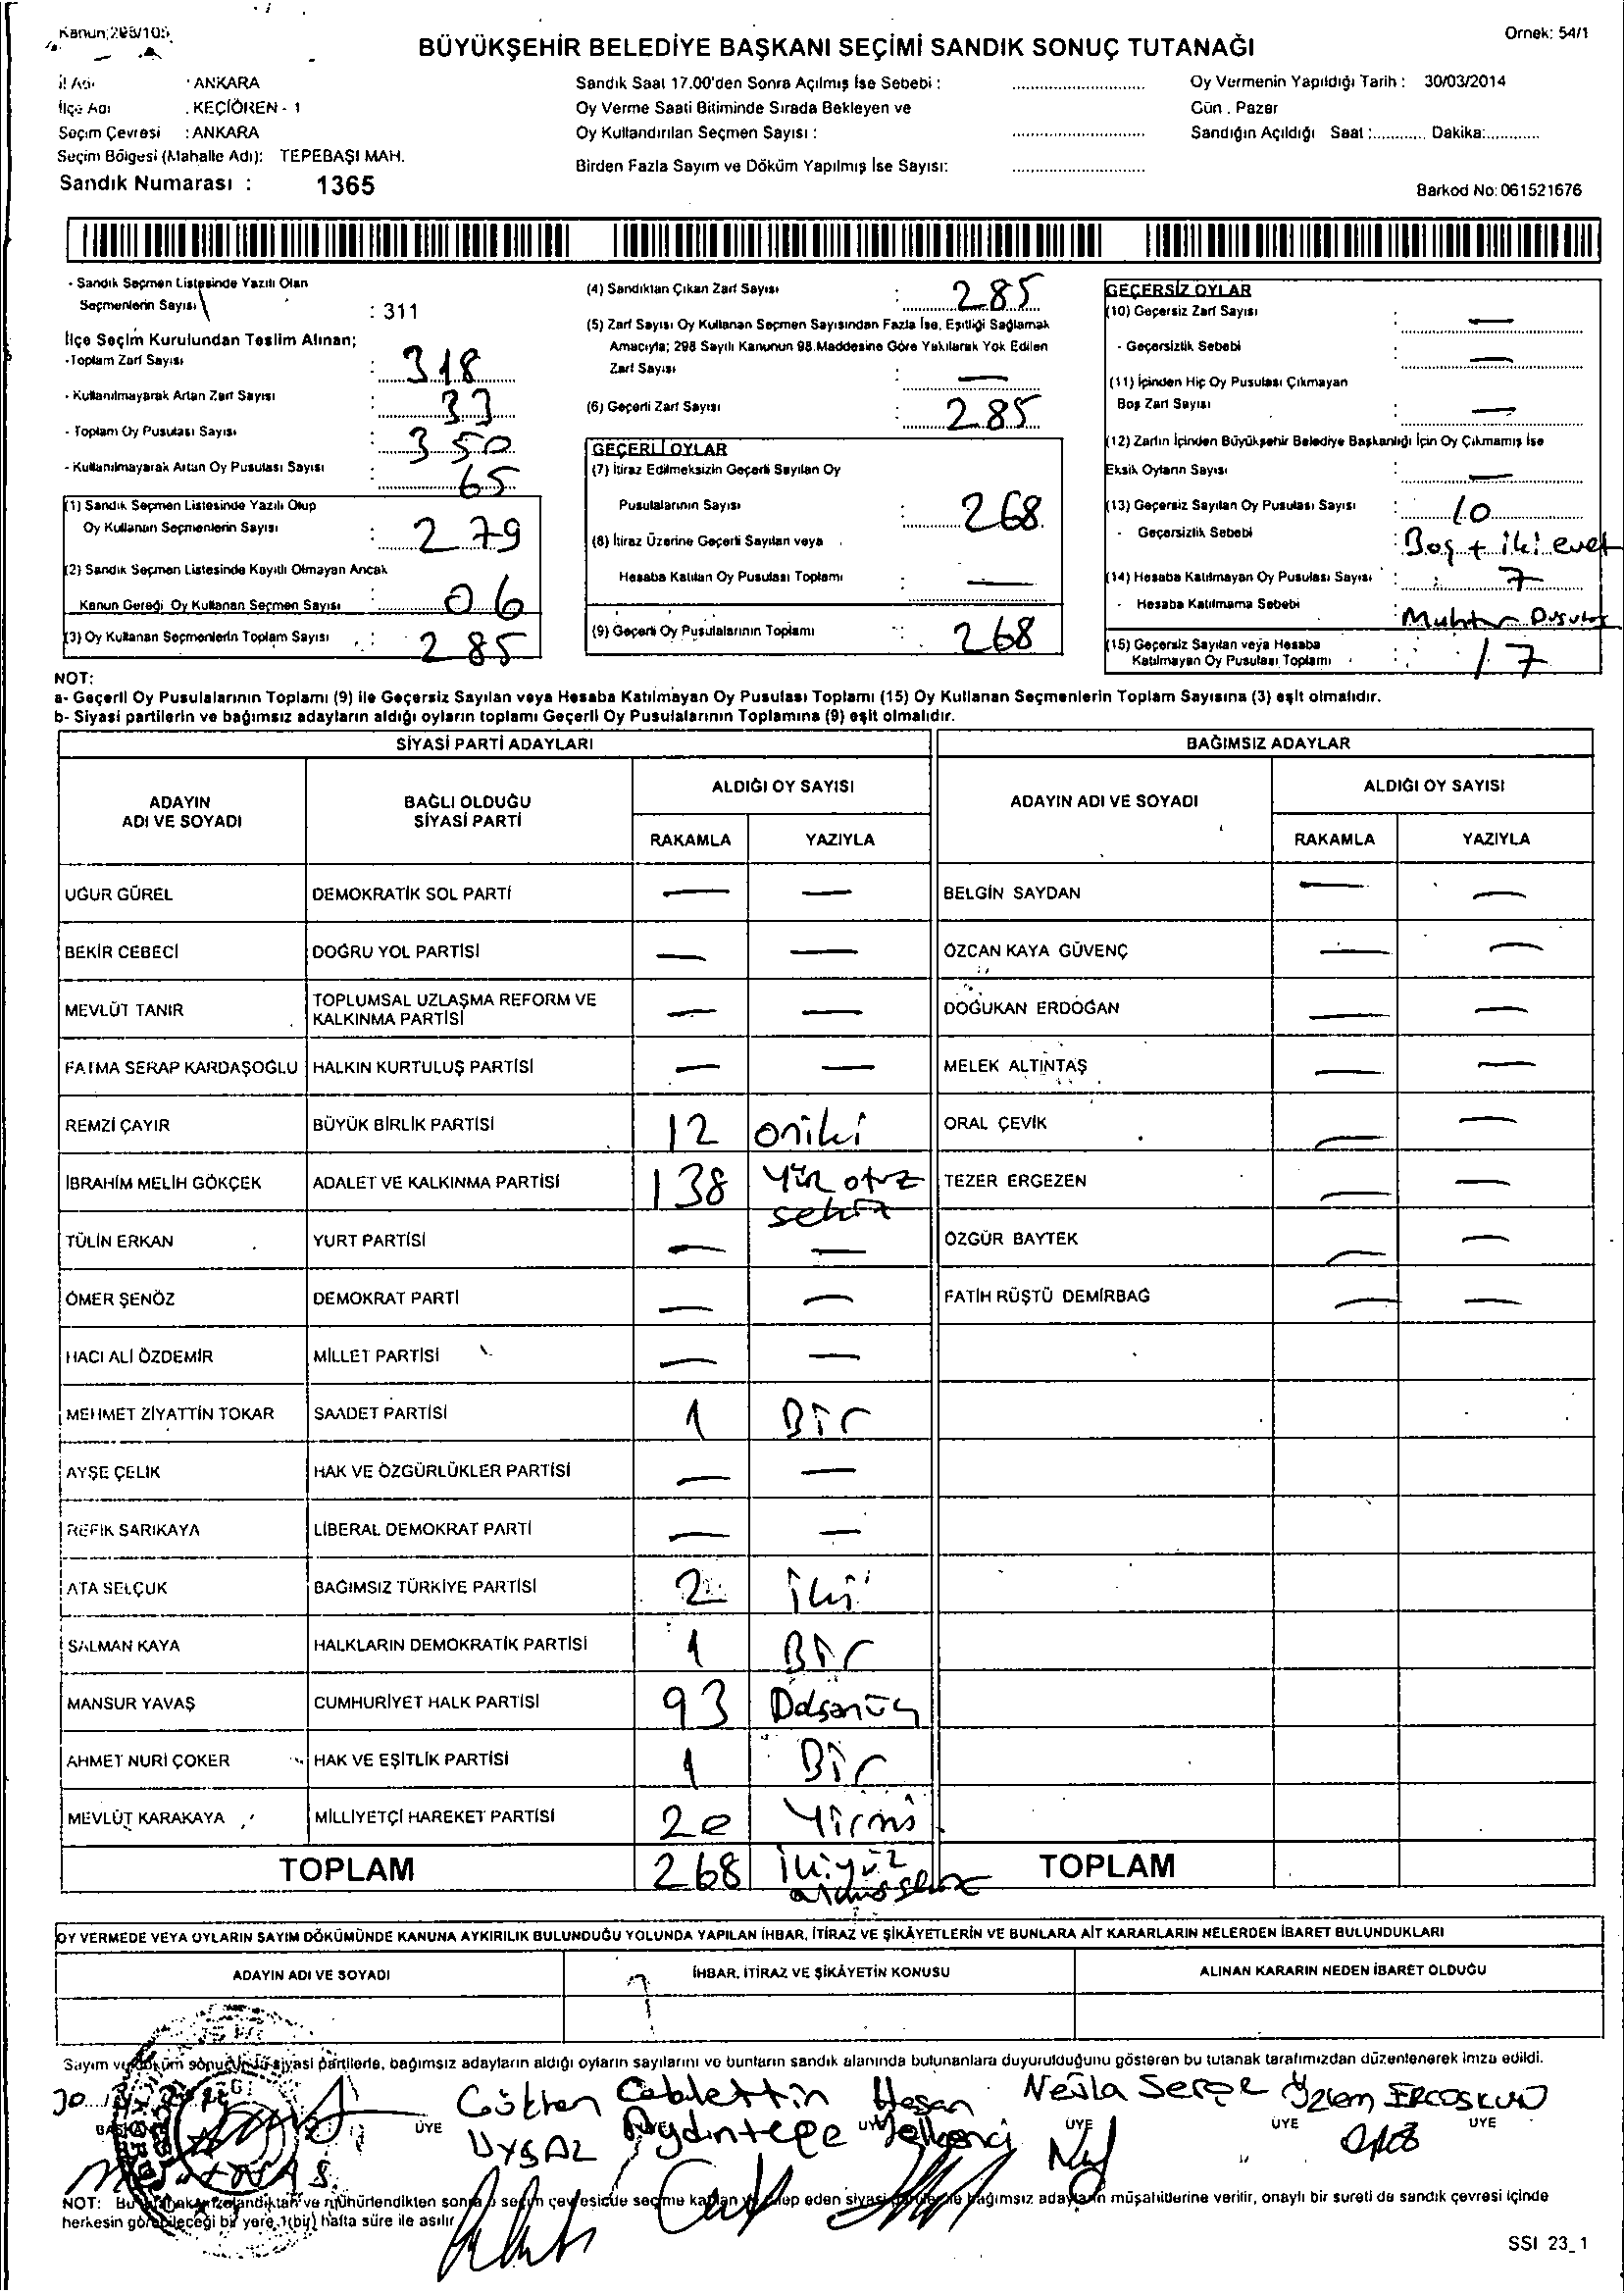 Kanun:298/105
Örnek: 54/1
BÜYÜKŞEHİR BELEDİYE BAŞKANI SEÇİMİ SANDIK SONUÇ TUTANAĞI
İl Adı : ANKARA
İlçe Adı : KEÇİÖREN - 1
Seçim Çevresi : ANKARA
Seçim Bölgesi (Mahalle Adı): TEPEBAŞI MAH.
Sandık Numarası : 1365
Sandık Saat 17.00'den Sonra Açılmış İse Sebebi :
Oy Verme Saati Bitiminde Sırada Bekleyen ve
Oy Kullandırılan Seçmen Sayısı :
Birden Fazla Sayım ve Döküm Yapılmış İse Sayısı:
Oy Vermenin Yapıldığı Tarih : 30/03/2014
Gün : Pazar
Sandığın Açıldığı Saat :............ Dakika:............
Barkod No: 061521676
- Sandık Seçmen Listesinde Yazılı Olan
Seçmenlerin Sayısı : 311
İlçe Seçim Kurulundan Teslim Alınan;
-Toplam Zarf Sayısı : 318
- Kullanılmayarak Artan Zarf Sayısı : 33
- Toplam Oy Pusulası Sayısı : 350
- Kullanılmayarak Artan Oy Pusulası Sayısı : 65
(1) Sandık Seçmen Listesinde Yazılı Olup
Oy Kullanan Seçmenlerin Sayısı : 279
(2) Sandık Seçmen Listesinde Kayıtlı Olmayan Ancak
Kanun Gereği Oy Kullanan Seçmen Sayısı : 06
(3) Oy Kullanan Seçmenlerin Toplam Sayısı : 285
(4) Sandıktan Çıkan Zarf Sayısı : 285
(5) Zarf Sayısı Oy Kullanan Seçmen Sayısından Fazla İse, Eşitliği Sağlamak
Amacıyla; 298 Sayılı Kanunun 98.Maddesine Göre Yakılarak Yok Edilen
Zarf Sayısı : —
(6) Geçerli Zarf Sayısı : 285
GEÇERLİ OYLAR
(7) İtiraz Edilmeksizin Geçerli Sayılan Oy
Pusulalarının Sayısı : 268
(8) İtiraz Üzerine Geçerli Sayılan veya
Hesaba Katılan Oy Pusulası Toplamı : —
(9) Geçerli Oy Pusulalarının Toplamı : 268
GEÇERSİZ OYLAR
(10) Geçersiz Zarf Sayısı : —
- Geçersizlik Sebebi : —
(11) İçinden Hiç Oy Pusulası Çıkmayan
Boş Zarf Sayısı : —
(12) Zarfın İçinden Büyükşehir Belediye Başkanlığı İçin Oy Çıkmamış İse
Eksik Oyların Sayısı : —
(13) Geçersiz Sayılan Oy Pusulası Sayısı : 10
- Geçersizlik Sebebi : Boş + iki evet
(14) Hesaba Katılmayan Oy Pusulası Sayısı : 7
- Hesaba Katılmama Sebebi : Muhtar
(15) Geçersiz Sayılan veya Hesaba
Katılmayan Oy Pusulası Toplamı : 17
NOT:
a- Geçerli Oy Pusulalarının Toplamı (9) ile Geçersiz Sayılan veya Hesaba Katılmayan Oy Pusulası Toplamı (15) Oy Kullanan Seçmenlerin Toplam Sayısına (3) eşit olmalıdır.
b- Siyasi partilerin ve bağımsız adayların aldığı oyların toplamı Geçerli Oy Pusulalarının Toplamına (9) eşit olmalıdır.
SİYASİ PARTİ ADAYLARI BAĞIMSIZ ADAYLAR
ADAYIN ADI VE SOYADI BAĞLI OLDUĞU SİYASİ PARTİ ALDIĞI OY SAYISI ADAYIN ADI VE SOYADI ALDIĞI OY SAYISI
RAKAMLA YAZIYLA RAKAMLA YAZIYLA
UĞUR GÜREL DEMOKRATİK SOL PARTİ — — BELGİN SAYDAN — —
BEKİR CEBECİ DOĞRU YOL PARTİSİ — — ÖZCAN KAYA GÜVENÇ — —
MEVLÜT TANIR TOPLUMSAL UZLAŞMA REFORM VE KALKINMA PARTİSİ — — DOĞUKAN ERDOĞAN — —
FATMA SERAP KARDAŞOĞLU HALKIN KURTULUŞ PARTİSİ — — MELEK ALTINTAŞ — —
REMZİ ÇAYIR BÜYÜK BİRLİK PARTİSİ 12 oniki ORAL ÇEVİK — —
İBRAHİM MELİH GÖKÇEK ADALET VE KALKINMA PARTİSİ 138 Yüz otuz sekiz TEZER ERGEZEN — —
TÜLİN ERKAN YURT PARTİSİ — — ÖZGÜR BAYTEK — —
ÖMER ŞENÖZ DEMOKRAT PARTİ — — FATİH RÜŞTÜ DEMİRBAĞ — —
HACI ALİ ÖZDEMİR MİLLET PARTİSİ — —
MEHMET ZİYATTİN TOKAR SAADET PARTİSİ 1 Bir
AYŞE ÇELİK HAK VE ÖZGÜRLÜKLER PARTİSİ — —
REFİK SARIKAYA LİBERAL DEMOKRAT PARTİ — —
ATA SELÇUK BAĞIMSIZ TÜRKİYE PARTİSİ 2 iki
SALMAN KAYA HALKLARIN DEMOKRATİK PARTİSİ 1 Bir
MANSUR YAVAŞ CUMHURİYET HALK PARTİSİ 93 Doksanüç
AHMET NURİ ÇOKER HAK VE EŞİTLİK PARTİSİ 1 Bir
MEVLÜT KARAKAYA MİLLİYETÇİ HAREKET PARTİSİ 20 Yirmi
TOPLAM 268 ikiyüz altmışsekiz TOPLAM
OY VERMEDE VEYA OYLARIN SAYIM DÖKÜMÜNDE KANUNA AYKIRILIK BULUNDUĞU YOLUNDA YAPILAN İHBAR, İTİRAZ VE ŞİKÂYETLERİN VE BUNLARA AİT KARARLARIN NELERDEN İBARET BULUNDUKLARI
ADAYIN ADI VE SOYADI İHBAR, İTİRAZ VE ŞİKÂYETİN KONUSU ALINAN KARARIN NEDEN İBARET OLDUĞU
Sayım ve döküm sonucunda siyasi partilerle, bağımsız adayların aldığı oyların sayılarını ve bunların sandık alanında bulunanlara duyurulduğunu gösteren bu tutanak tarafımızdan düzenlenerek imza edildi.
Gökten Celalettin Hasan Nesla Serçe Özlem ERCOSKUN
BAŞKAN ÜYE ÜYE ÜYE ÜYE ÜYE
UYSAL Aydıntepe Yelkenci
NOT: Bu tutanak imzalandıktan ve mühürlendikten sonra o seçim çevresinde seçime katılan ve talep eden siyasi partiler ile bağımsız adayların müşahitlerine verilir, onaylı bir sureti de sandık çevresi içinde
herkesin görebileceği bir yere 1(bir) hafta süre ile asılır
SSI 23_1